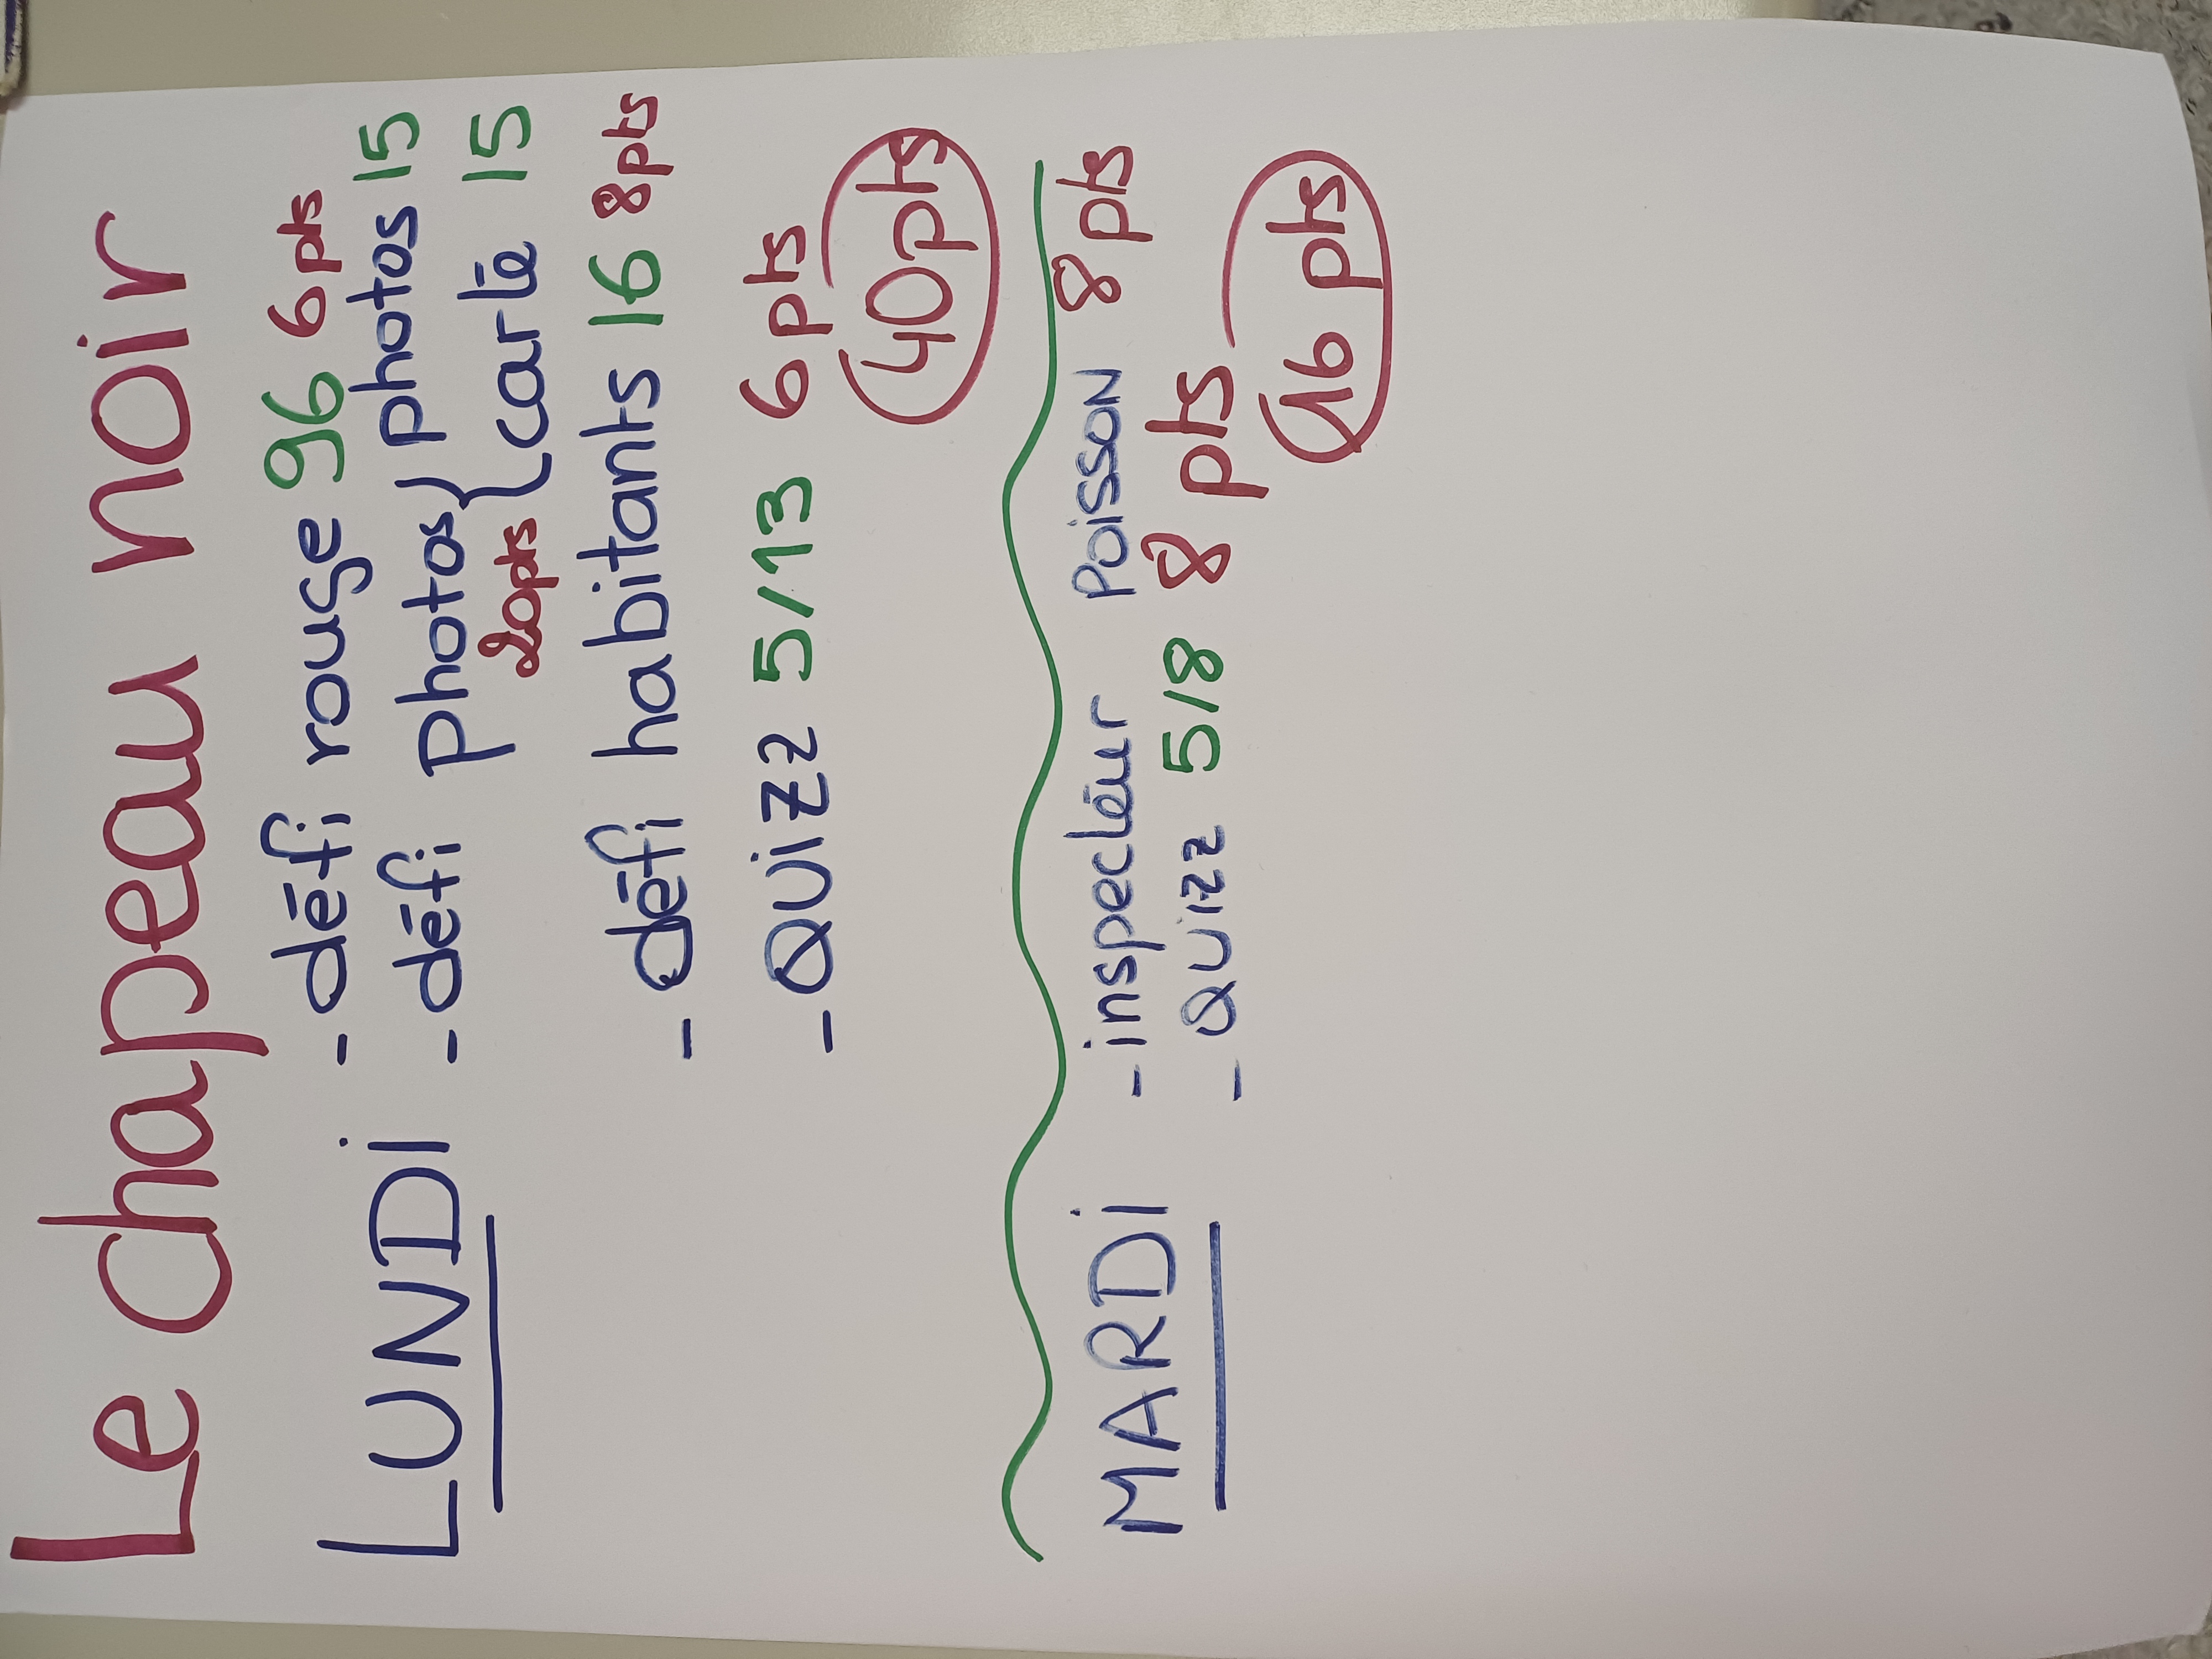 Le chapeau noir
LUNDi - défi rouge 96 6 pts
- défi photos } photos 15
20pts { carte 15
- défi habitants 16 8pts
- QUiZZ 5/13 6 pts
40pts
MARDi - inspecteur Poisson 8 pts
- QUiZZ 5/8 8 pts
16 pts